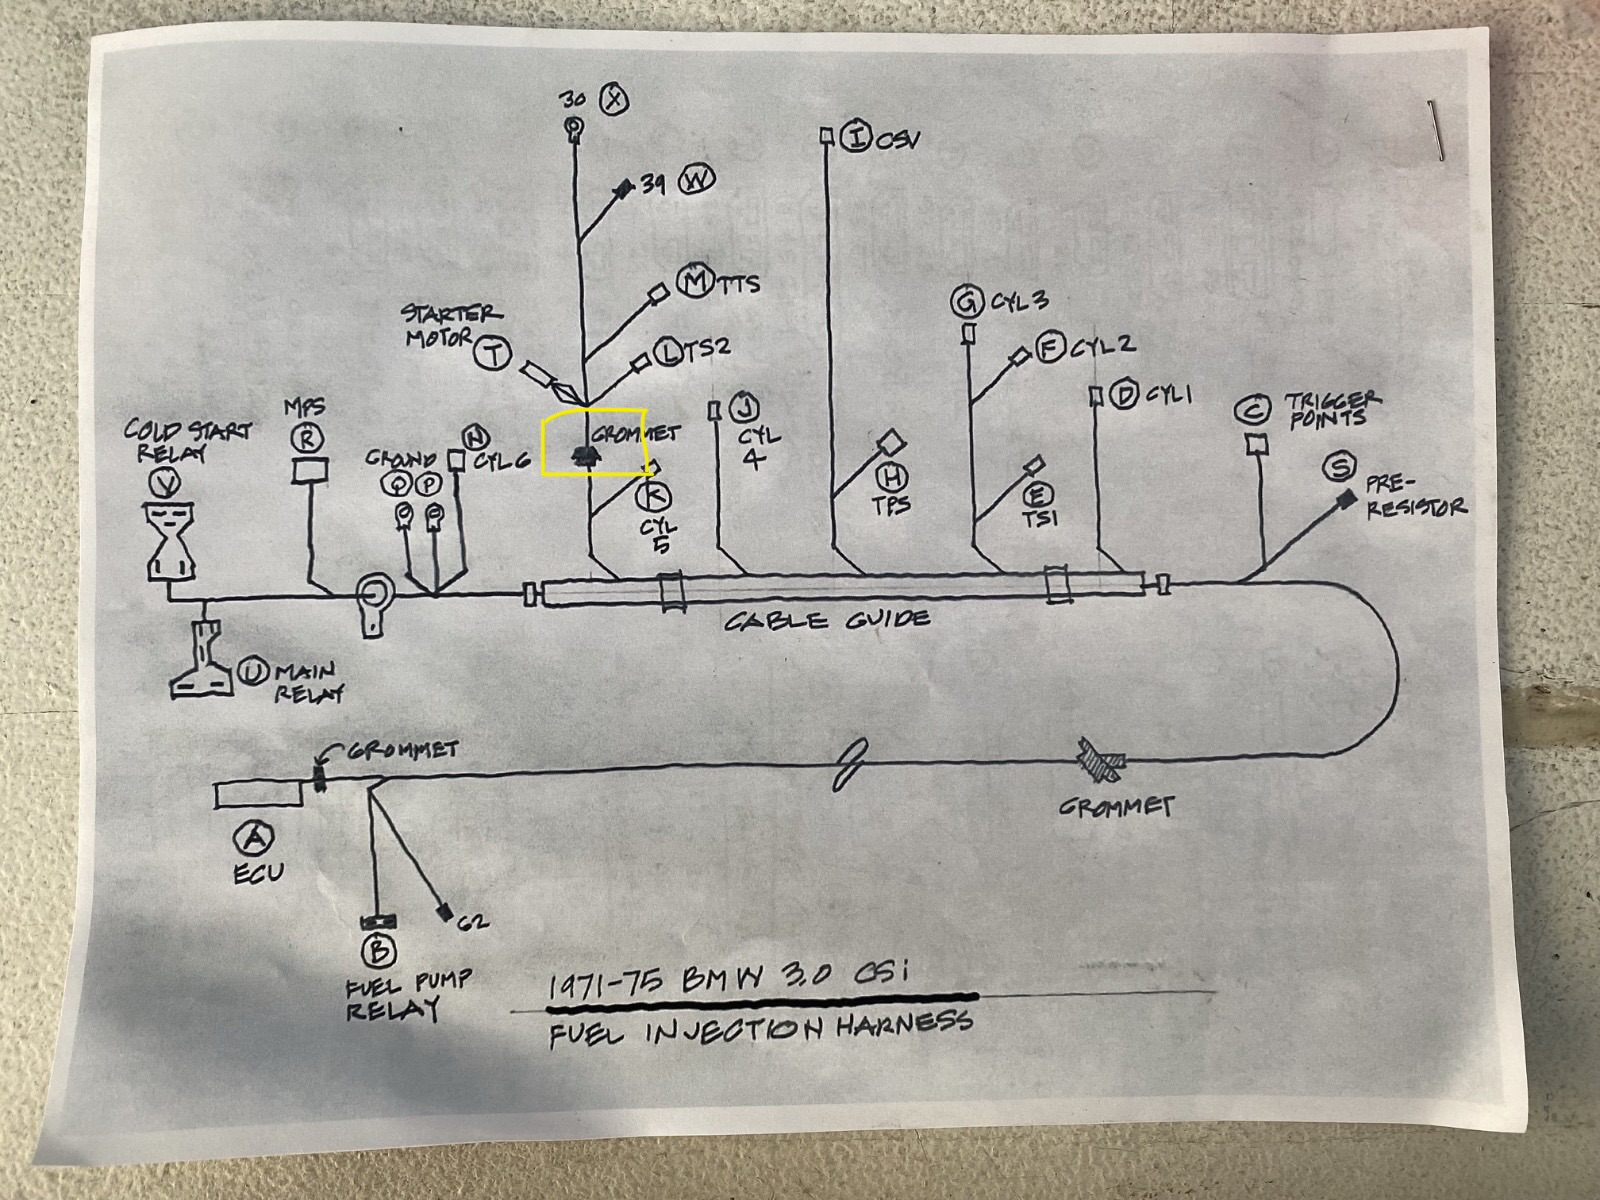 30 X
39 W
M TTS
STARTER
MOTOR T
L TS2
GROMMET
I CSV
G CYL 3
F CYL 2
D CYL 1
C TRIGGER
POINTS
S PRE-
RESISTOR
COLD START
RELAY
V
MPS
R
GROUND
Q P
N
CYL 6
K
CYL
5
J
CYL
4
H
TPS
E
TS1
CABLE GUIDE
U MAIN
RELAY
GROMMET
GROMMET
A
ECU
62
B
FUEL PUMP
RELAY
1971-75 BMW 3.0 CSi
FUEL INJECTION HARNESS